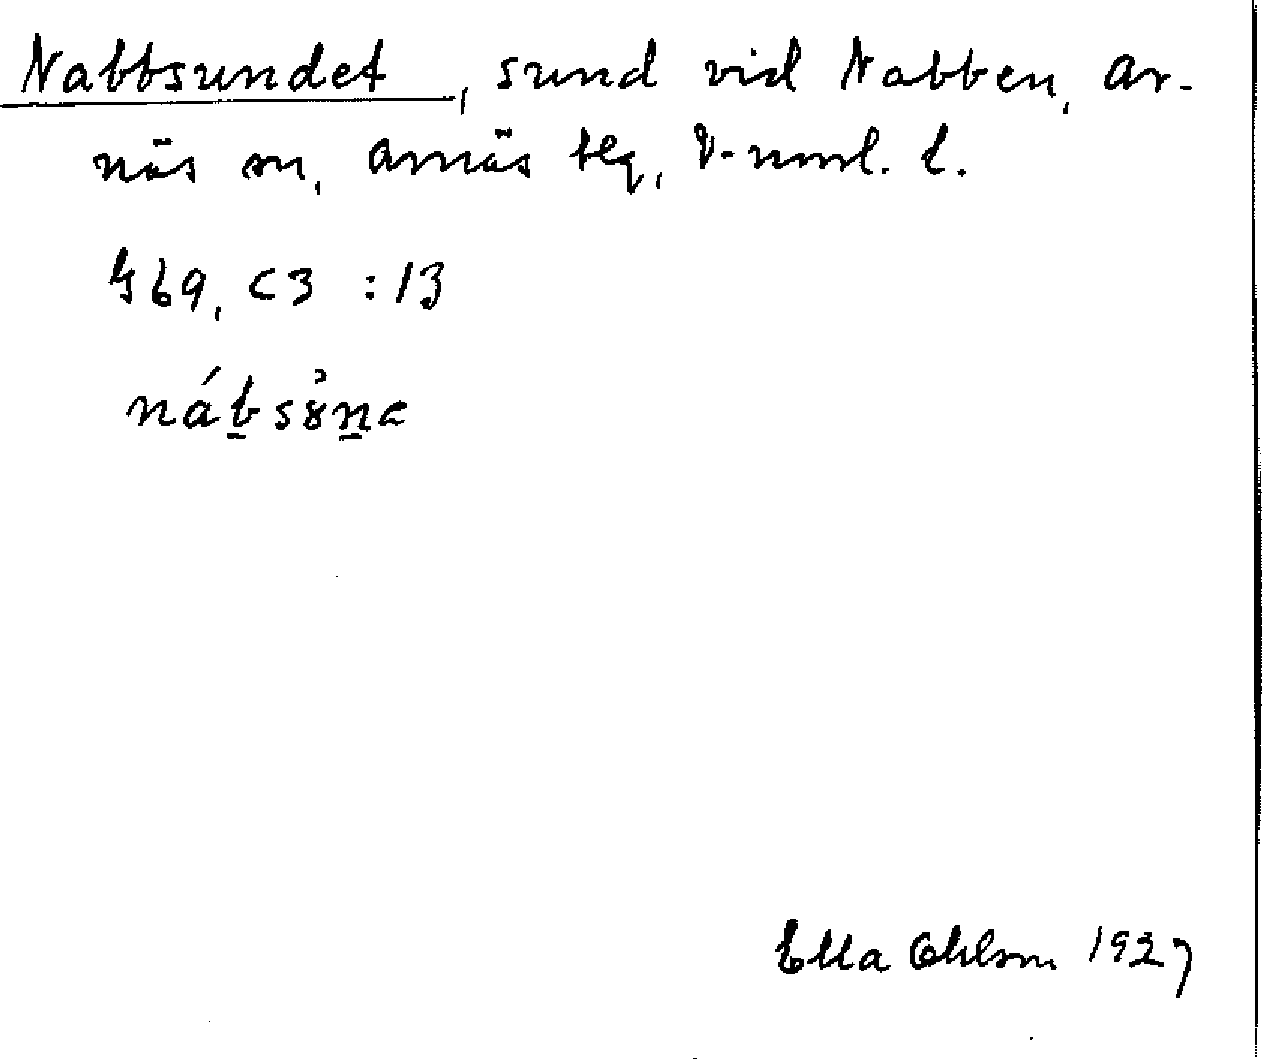 Nabbsundet, sund vid Nabben, Ar-
näs sn, Arnäs tlg, V-nml. l.
469, C3 :13
Ella Ohlson 1927